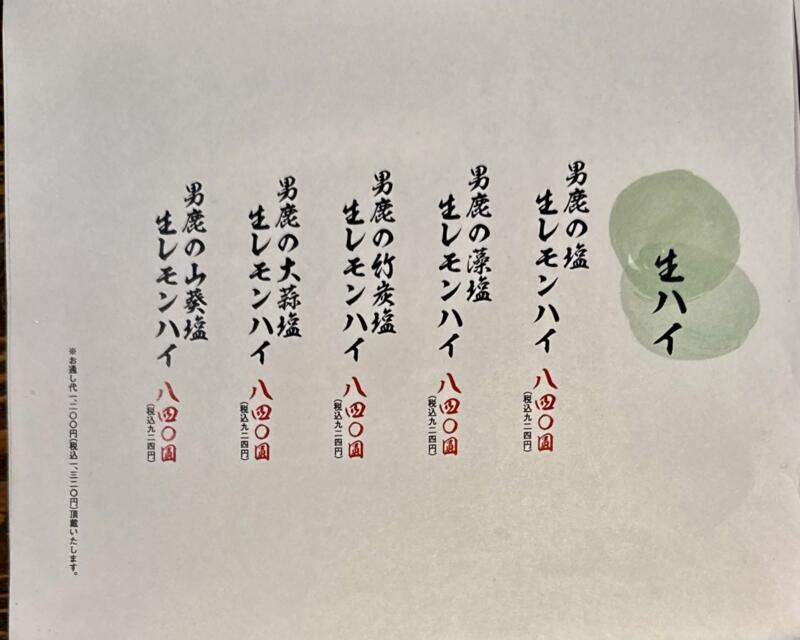 生ハイ
男鹿の塩
生レモンハイ 八四〇圓
(税込九二四円)
男鹿の藻塩
生レモンハイ 八四〇圓
(税込九二四円)
男鹿の竹炭塩
生レモンハイ 八四〇圓
(税込九二四円)
男鹿の大蒜塩
生レモンハイ 八四〇圓
(税込九二四円)
男鹿の山葵塩
生レモンハイ 八四〇圓
(税込九二四円)
※お通し代一、二〇〇円(税込一、三二〇円)頂戴いたします。